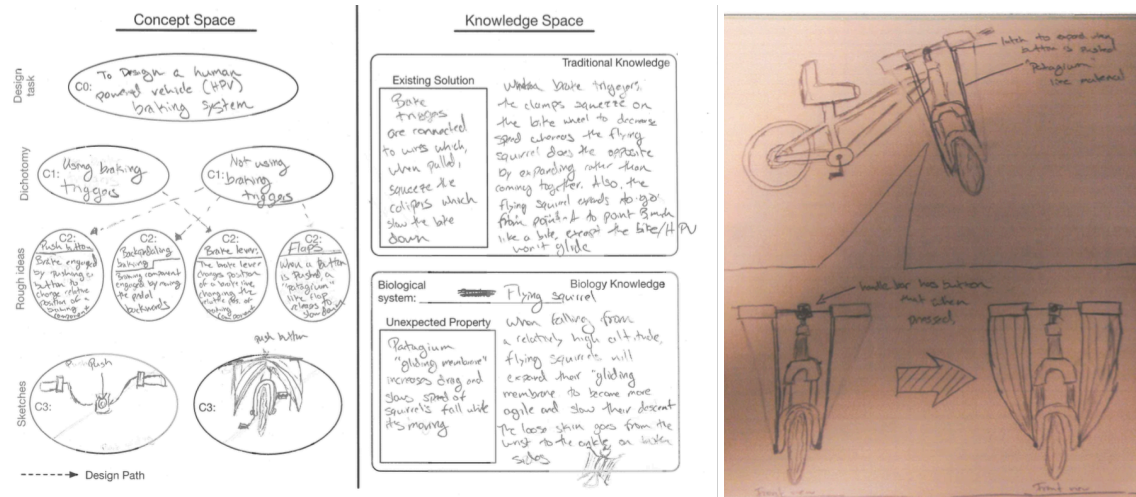 Concept Space
Design
task
C0:
To Design a human
powered vehicle (HPV)
braking system
Dichotomy
C1:
Using braking
triggers
C1:
Not using
braking
triggers
Rough ideas
C2:
Push button
Brake engaged
by pushing a
button to
change relative
position of a
braking
component
C2:
Backpedaling
braking
Braking component
engaged by moving
the pedal
backwards
C2:
Brake lever
The brake lever
changes position
of a brake line
changing the
relative pos. of
braking
component
C2:
Flaps
When a button
is pushed, a
"patagium"
like flap
releases to
slow down
Sketches
C3:
Push
C3:
push button
Design Path
Knowledge Space
Traditional Knowledge
Existing Solution
Brake
triggers
are connected
to wires which,
when pulled,
squeeze the
calipers which
slow the bike
down
brake triggers,
the clamps squeeze on
the bike wheel to decrease
speed whereas the flying
squirrel does the opposite
by expanding rather than
coming together. Also, the
flying squirrel expands to go
from point A to point B much
like a bike, except the bike/HPV
won't glide
Biological
system:
Flying squirrel
Biology Knowledge
Unexpected Property
Patagium
"gliding membrane"
increases drag and
slows speed of
squirrels fall while
its moving
When falling from
a relatively high altitude,
flying squirrels will
expand their "gliding
membrane to become more
agile and slow their descent
The loose skin goes from the
wrist to the ankle on both
sides
latch to expand when
button is pushed
"Patagium"
like material
handle bar has button
that when
pressed,
Front view
Front view